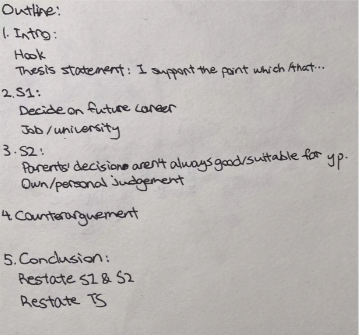 Outline:
1. Intro:
Hook
Thesis statement: I support the point which/that...
2. S1:
Decide on future career
Job/university
3. S2:
Parents' decisions aren't always good/suitable for yp.
Own/personal judgement
4. Counterarguement
5. Conclusion:
Restate S1 & S2
Restate TS